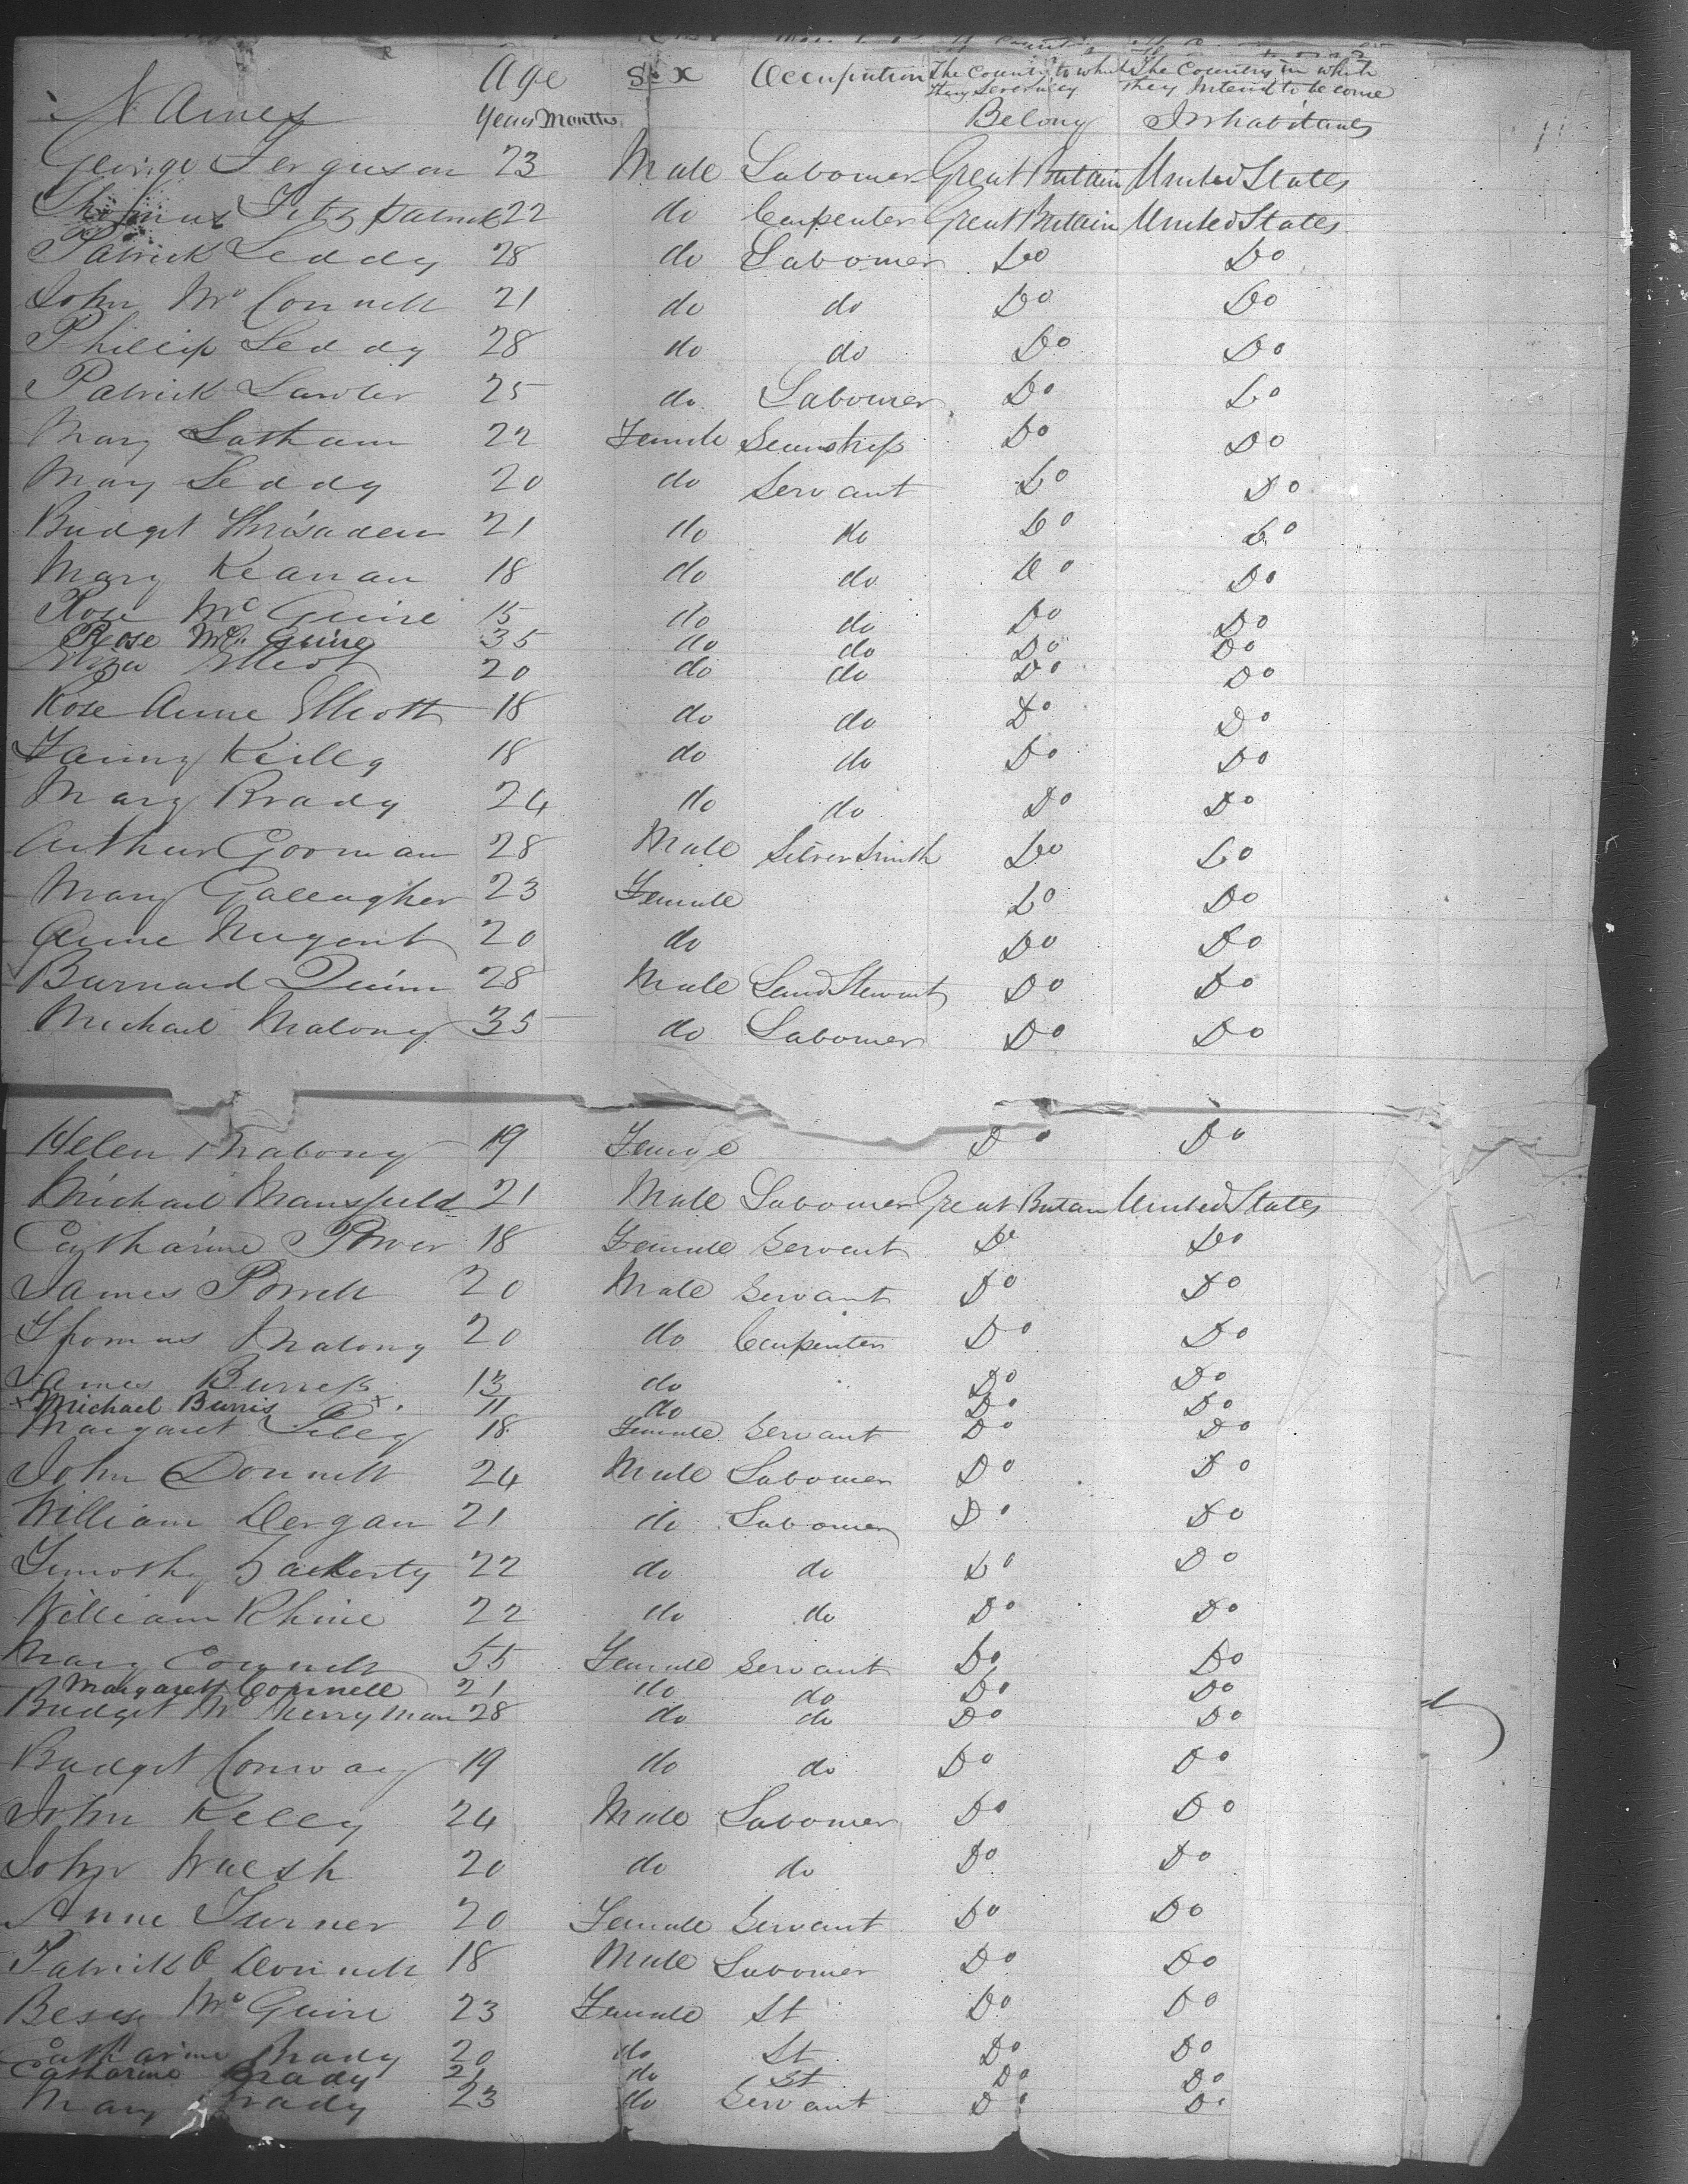 Names Age Sex Occupation The Country to which they Severally Belong The Country in which they intend to become Inhabitants
Years Months
George Ferguson 23 Male Labourer Great Britain United States
Thomas Fitzpatrick 22 do Carpenter Great Britain United States
Patrick Leddy 28 do Labourer Do Do
John McConnell 21 do do Do Do
Phillip Leddy 28 do do Do Do
Patrick Lawler 25 do Labourer Do Do
Mary Latham 22 Female Seamstress Do Do
Mary Leddy 20 do Servant Do Do
Bridget 21 do do Do Do
Mary Keanan 18 do do Do Do
Rose McGuire 15 do do Do Do
Rose McGuire 35 do do Do Do
Eliza Elliot 20 do do Do Do
Rose Anne Elliott 18 do do Do Do
Fanny Keilly 18 do do Do Do
Mary Brady 24 do do Do Do
Arthur Gorman 28 Male Silver Smith Do Do
Mary Galleagher 23 Female Do Do
Anne Nugent 20 do Do Do
Burnard Quinn 28 Male Land Stewart Do Do
Michael Malony 35 do Labourer Do Do
Helen Malony 19 Female Do Do
Michael Mansfield 21 Male Labourer Great Britain United States
Catharine Power 18 Female Servant Do Do
James Powell 20 Male Servant Do Do
Thomas Malony 20 do Carpenter Do Do
James Burress 13 do Do Do
x Michael Burris x 11 do Do Do
Margaret 18 Female Servant Do Do
John Donnell 24 Male Labourer Do Do
William Dergan 21 do Labourer Do Do
Timothy 22 do do Do Do
William Rhine 22 do do Do Do
Mary Connell 55 Female Servant Do Do
Margarett Connell 21 do do Do Do
Bridget McMerryman 28 do do Do Do
Bridget Conway 19 do do Do Do
John Kelly 24 Male Labourer Do Do
John Walsh 20 do do Do Do
Anne Turner 20 Female Servant Do Do
Patrick O Donnell 18 Male Labourer Do Do
Bessy McGuire 23 Female St Do Do
Catharine Brady 20 do St Do Do
Catharine Brady 21 do St Do Do
Mary Brady 23 do Servant Do Do